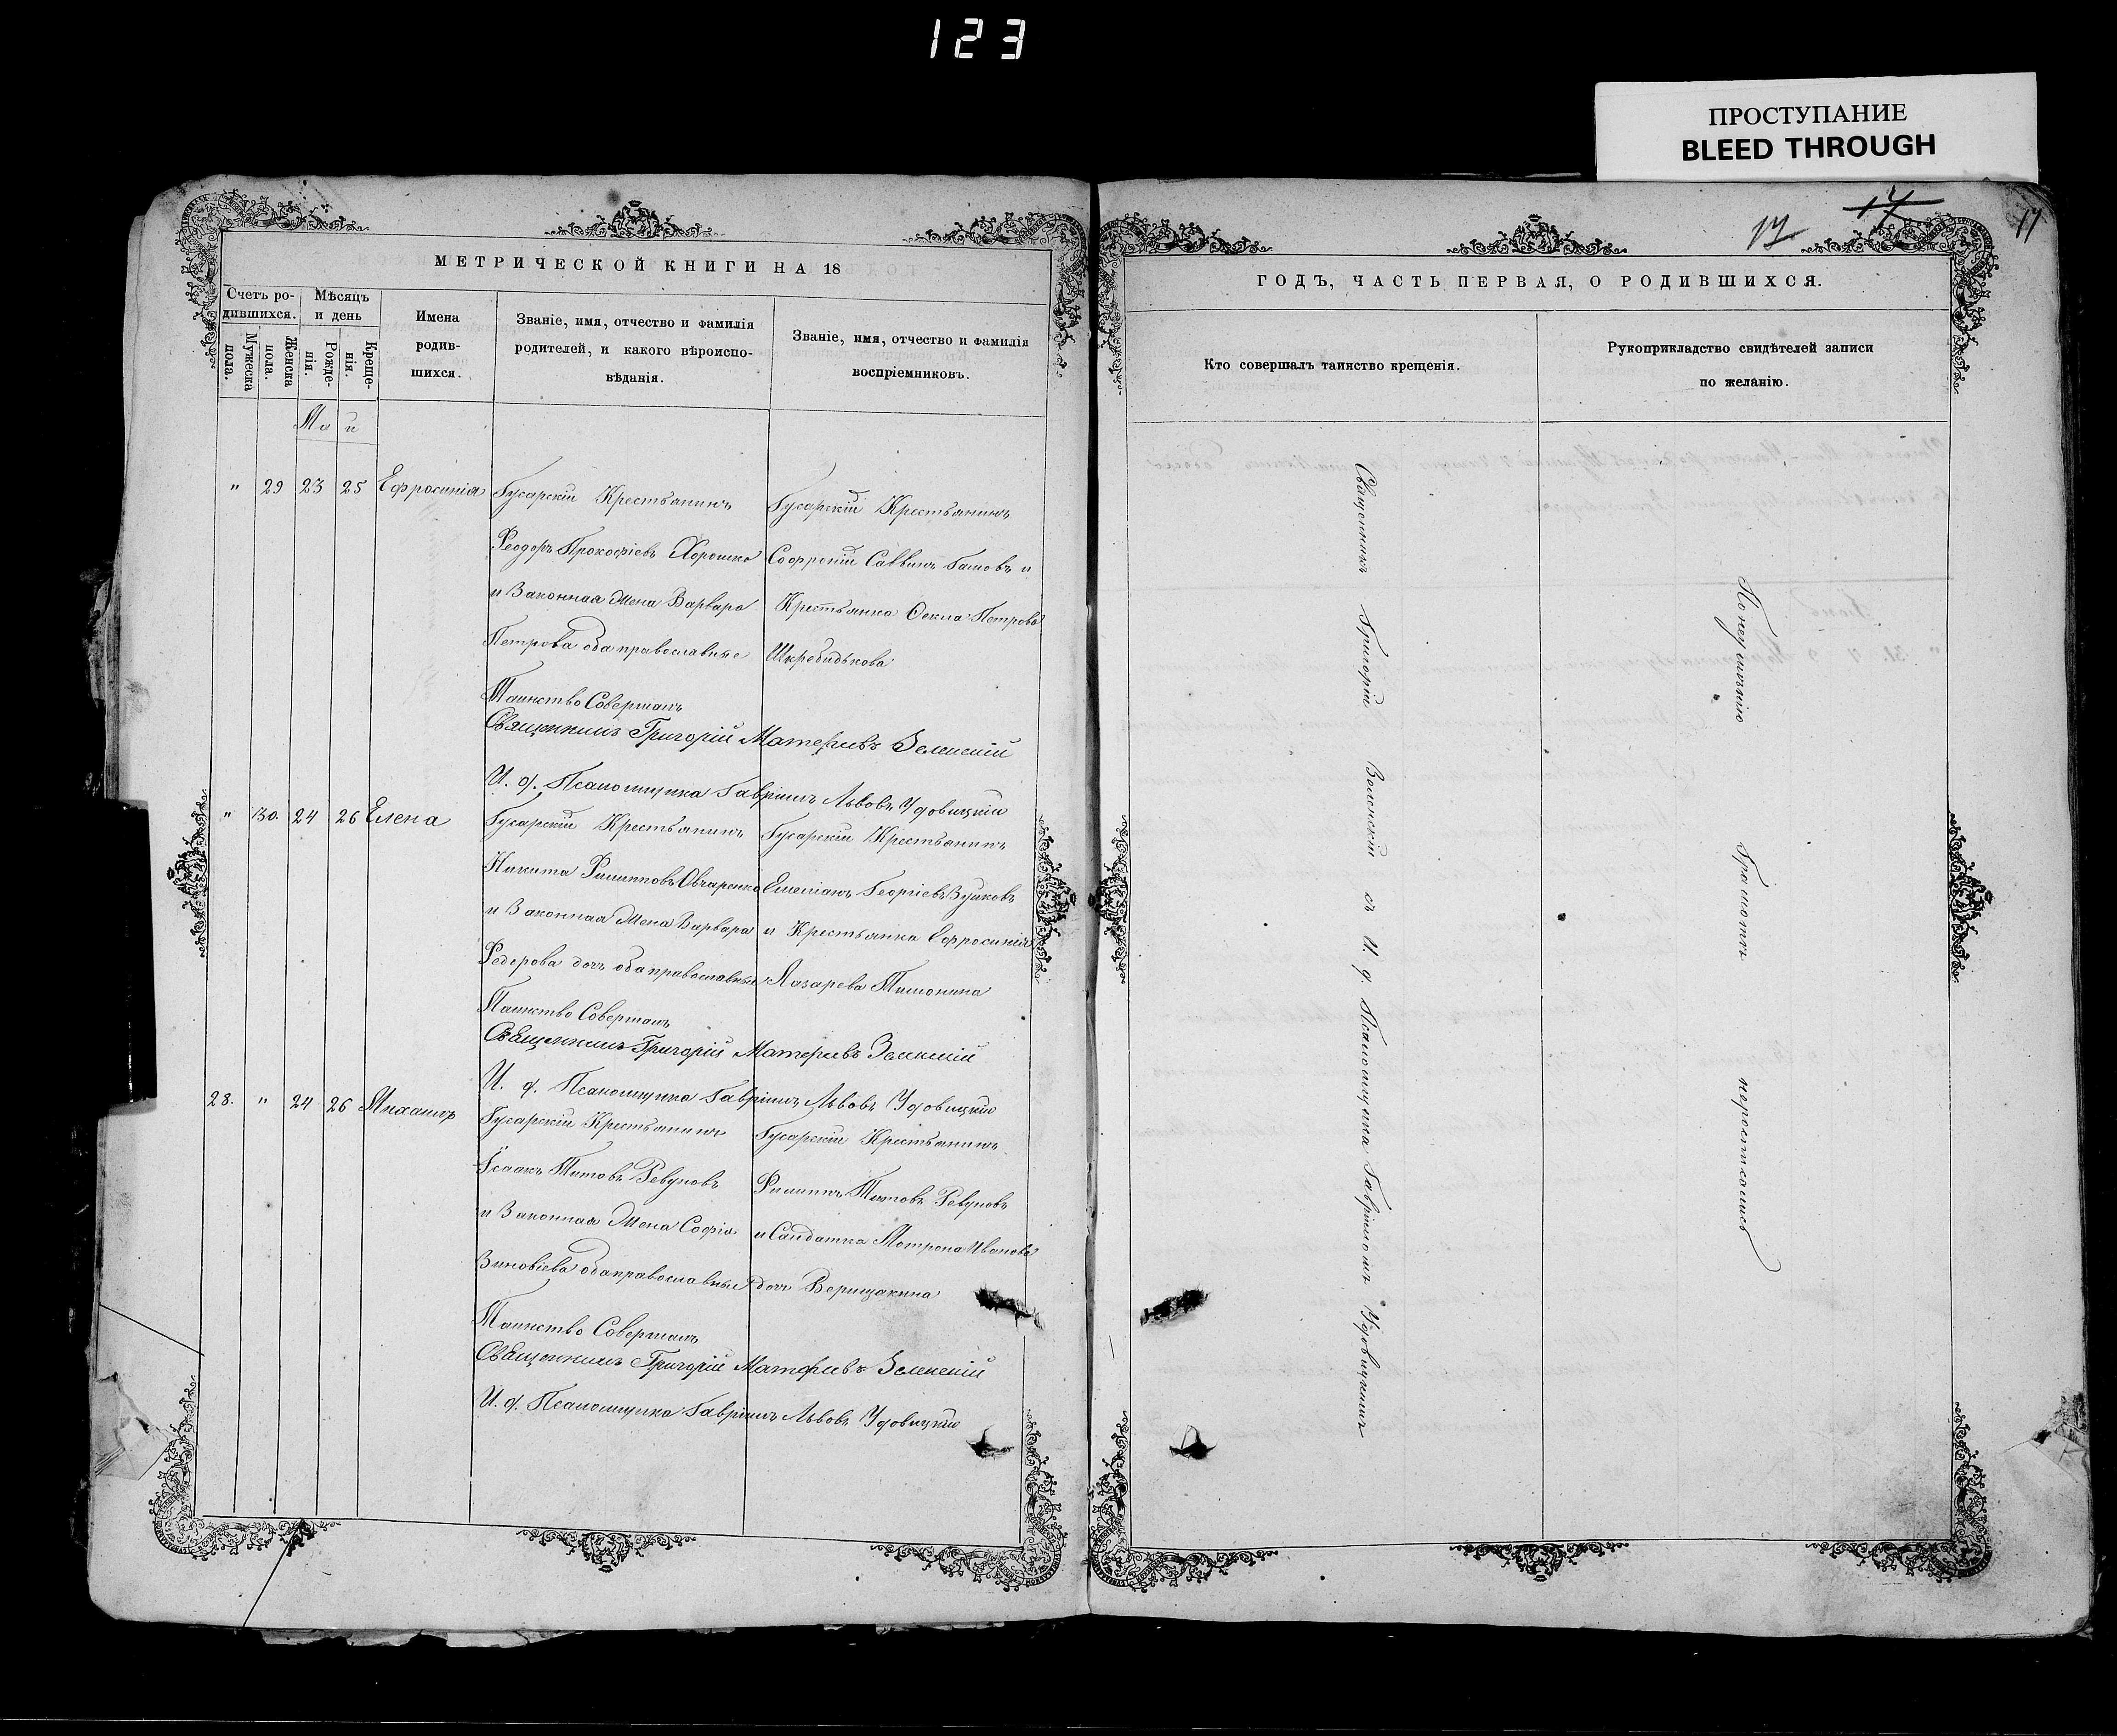 123
ПРОСТУПАНИЕ
BLEED THROUGH
17
17
17
МЕТРИЧЕСКОЙ КНИГИ НА 18
Счетъ ро-
дившихся.
Мужеска
пола.
Женска
пола.
Мѣсяцъ
и день
Рожде-
нія.
Креще-
нія.
Имена
родив-
шихся.
Званіе, имя, отчество и фамилія
родителей, и какого вѣроиспо-
вѣданія.
Званіе, имя, отчество и фамилія
воспріемниковъ.
Маи
" 29 23 25 Ефросинія
Гусарскій Крестьянинъ
Феодоръ Прокофіевъ Хорошко
и Законная Жена Варвара
Петрова оба православные
Гусарскій Крестьянинъ
Софроній Саввинъ Гамовъ и
Крестьянка Фекла Петрова
Шкребидькова
Таинство Совершалъ
Священникъ Григорій Матфеевъ Зеленскій
И. д. Псаломщика Гавріилъ Львовъ Удовицкій
" 30. 24 26 Елена
Гусарскій Крестьянинъ
Никита Филипповъ Овчаренко
и Законная Жена Варвара
Федерова дочь оба православные
Гусарскій Крестьянинъ
Емеліанъ Георгіевъ Вушковъ
и Крестьянка Ефросинія
Лазарева Тимонина
Таинство Совершалъ
Священникъ Григорій Матфеевъ Зеленскій
И. д. Псаломщика Гавріилъ Львовъ Удовицкій
28. " 24 26 Михаилъ
Гусарскій Крестьянинъ
Ісаакъ Титовъ Ревуновъ
и Законная Жена Софія
Зиновіева оба православные
Гусарскій Крестьянинъ
Филиппъ Титовъ Ревуновъ
и Салдатка Мотрона Иванова
дочь Верещакина
Таинство Совершалъ
Священникъ Григорій Матфеевъ Зеленскій
И. д. Псаломщика Гавріилъ Львовъ Удовицкій
ГОДЪ, ЧАСТЬ ПЕРВАЯ, О РОДИВШИХСЯ.
Кто совершалъ таинство крещенія.
Рукоприкладство свидѣтелей записи
по желанію.
Священникъ Григорій Зеленскій съ И. д. Псаломщика Гавріиломъ Удовицкимъ
По неумѣнію Грамотѣ нерасписались